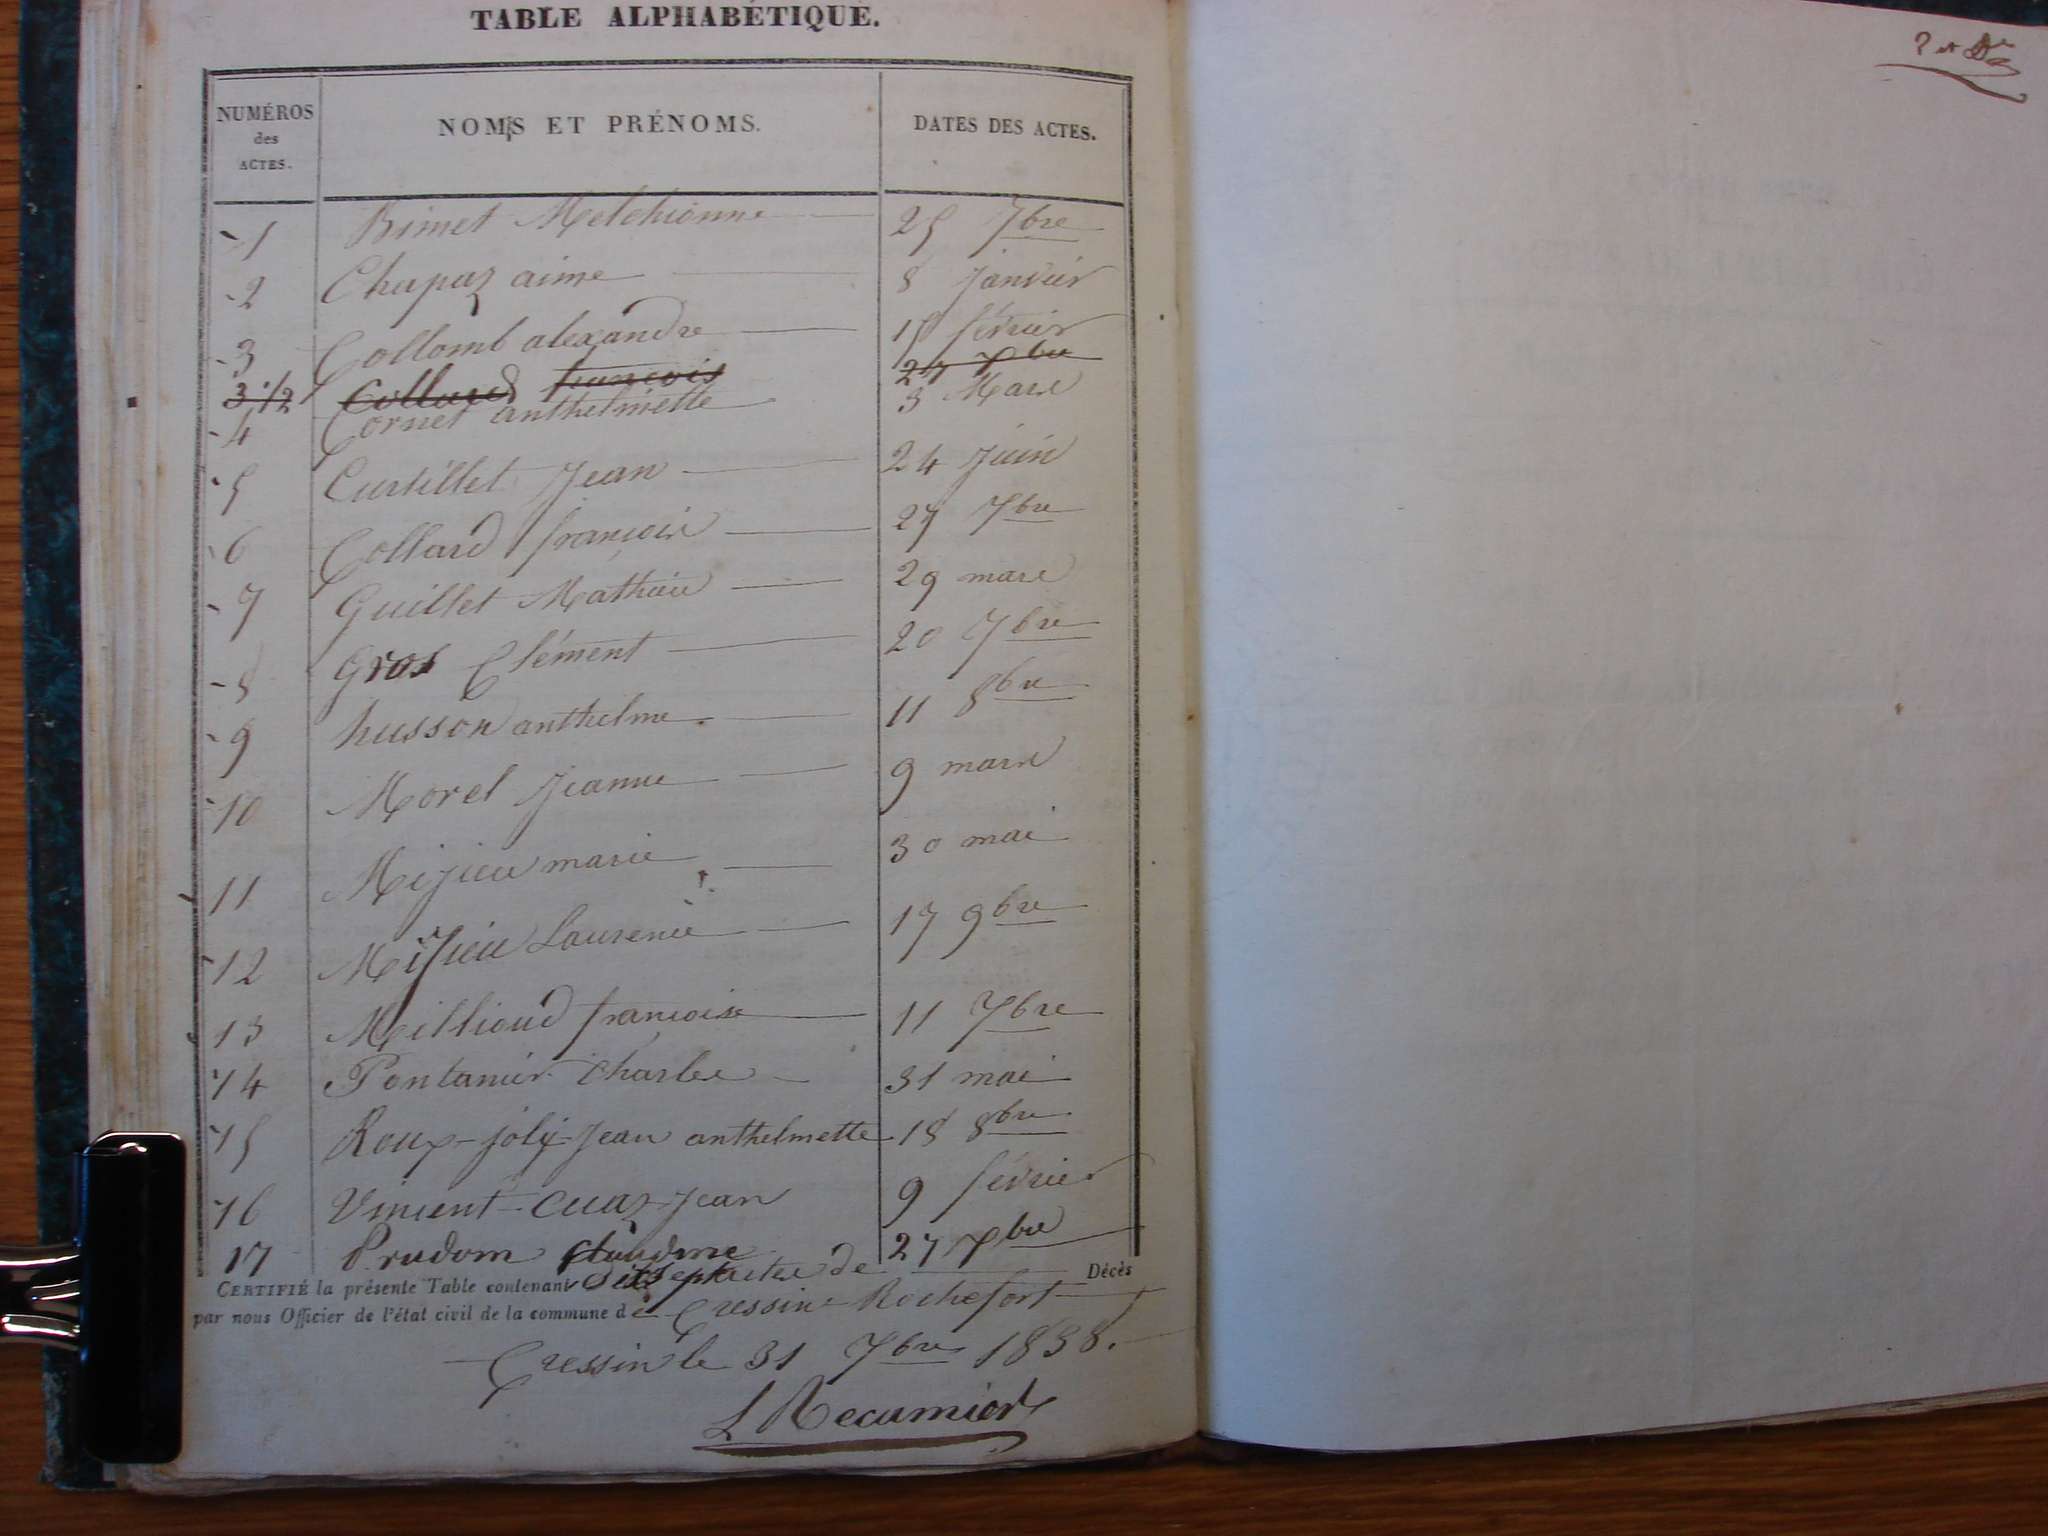 TABLE ALPHABÉTIQUE.
NUMÉROS des ACTES. NOMS ET PRÉNOMS. DATES DES ACTES.
1 Bimet Melchionne 25 7bre
2 Chapaz aime 8 janvier
3 Collomb alexandre 18 février
3 1/2 Collard francois 27 Xbre
4 Cornet anthelmette 3 Mars
5 Curtillet Jean 24 Juin
6 Collard françois 27 7bre
7 Guillet Mathieu 29 mars
8 Gros Clément 20 7bre
9 husson anthelme 11 8bre
10 Morel Jeanne 9 mars
11 Mijieu marie 30 mai
12 Mijieu Laurence 17 9bre
13 Millioud françoise 11 7bre
14 Pontanier Charles 31 mai
15 Roux-joly Jean anthelmette 18 8bre
16 Vincent-Cuaz Jean 9 février
17 Prudom Claudine 27 Xbre
CERTIFIÉ la présente Table contenant dix Sept actes de Décès
par nous Officier de l'état civil de la commune de Cressin-Rochefort
Cressin le 31 Xbre 1838.
L Recamier
2 et De